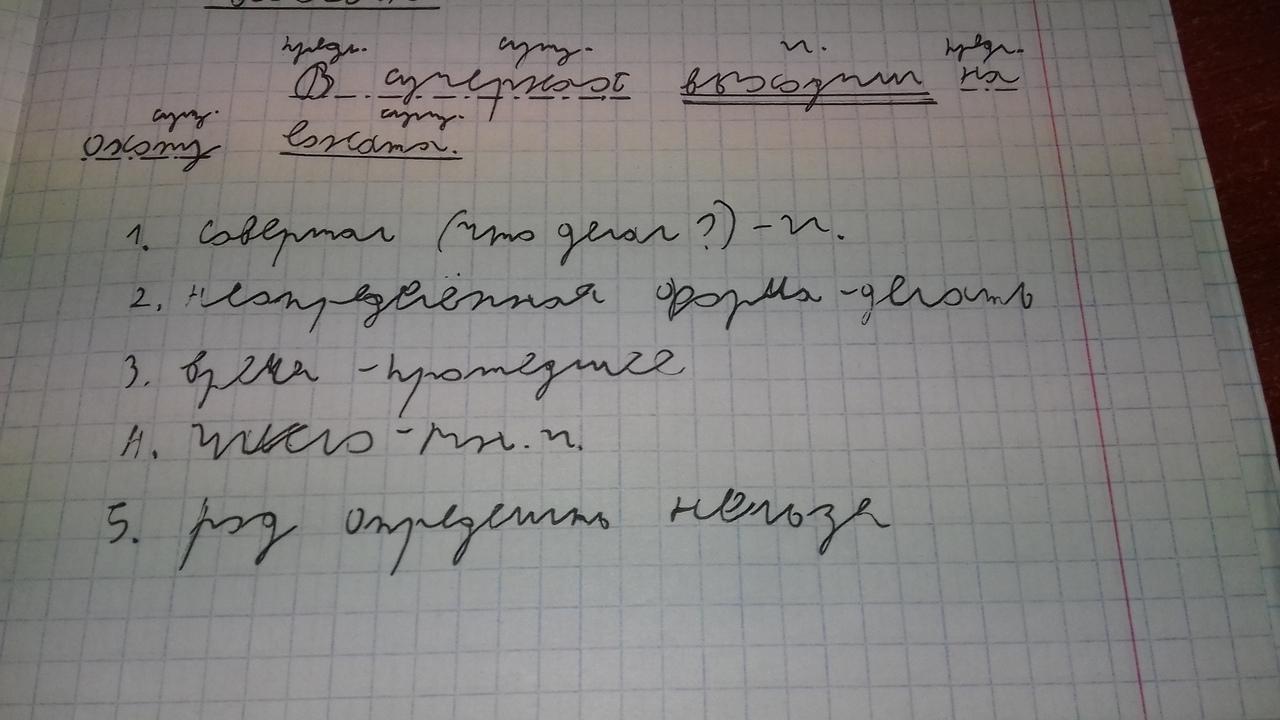 предл. сущ. г. предл.
В сумерках выходили на
сущ. сущ.
охоту волчата.
1. совершал (что делал?) - г.
2. неопределённая форма - делать
3. время - прошедшее
4. число - мн. ч.
5. род определить нельзя